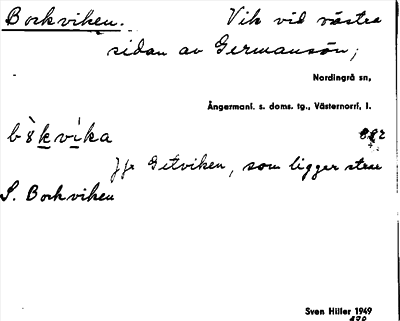 Bockviken. Vik vid västra
sidan av Germansön;
Nordingrå sn,
Ångermanl. s. doms. tg., Västernorrl. l.
bòkvika
Jfr Getviken, som ligger
S. Bockviken
Sven Hiller 1949